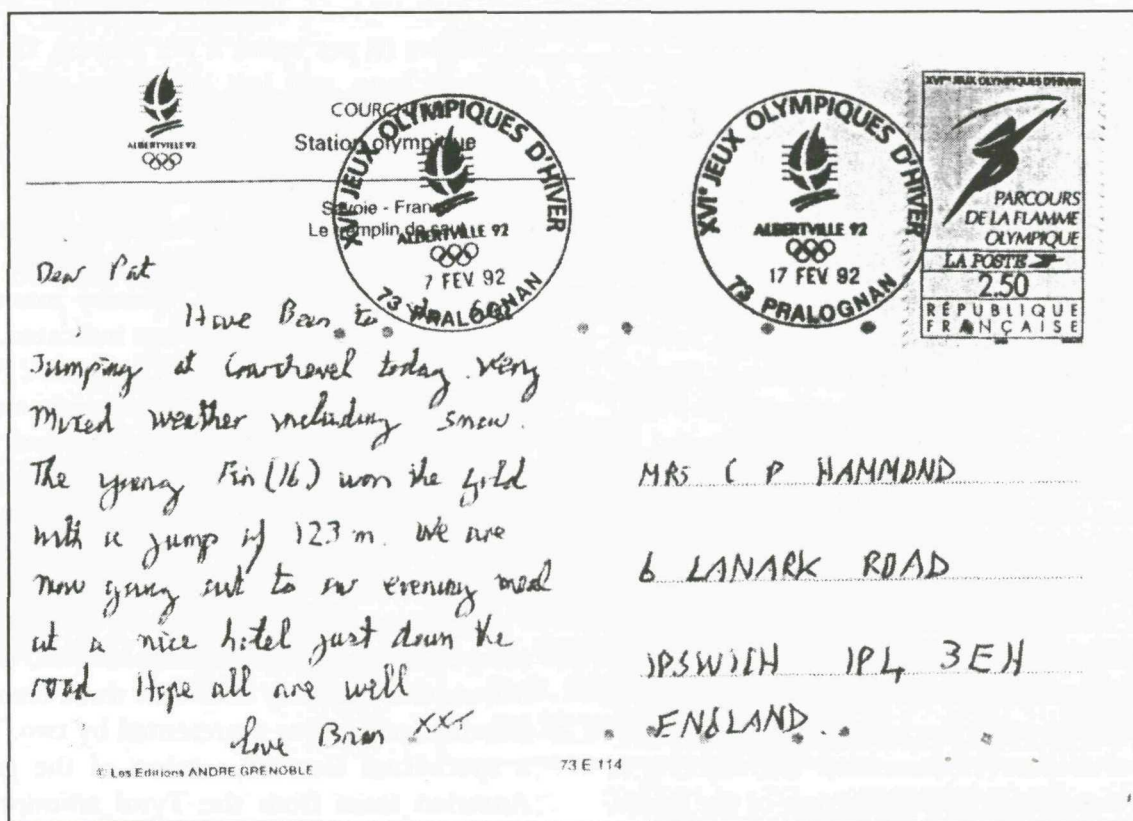 ALBERTVILLE 92
Station olympique
Savoie - France
Le tremplin de saut
XVIe JEUX OLYMPIQUES D'HIVER
ALBERTVILLE 92
7 FEV 92
73 PRALOGNAN
XVIe JEUX OLYMPIQUES D'HIVER
ALBERTVILLE 92
17 FEV 92
73 PRALOGNAN
XVIes JEUX OLYMPIQUES D'HIVER
PARCOURS
DE LA FLAMME
OLYMPIQUE
LA POSTE
2.50
RÉPUBLIQUE
FRANÇAISE
Dear Pat
Have Been to
Jumping at Courchevel today. Very
Mixed weather including snow.
The young Fin (16) won the gold
with a jump of 123 m. We are
now going out to our evening meal
at a nice hotel just down the
road Hope all are well
love Brian XXX
MRS C P HAMMOND
6 LANARK ROAD
IPSWICH IP4 3EH
ENGLAND.
© Les Editions ANDRE GRENOBLE
73 E 114